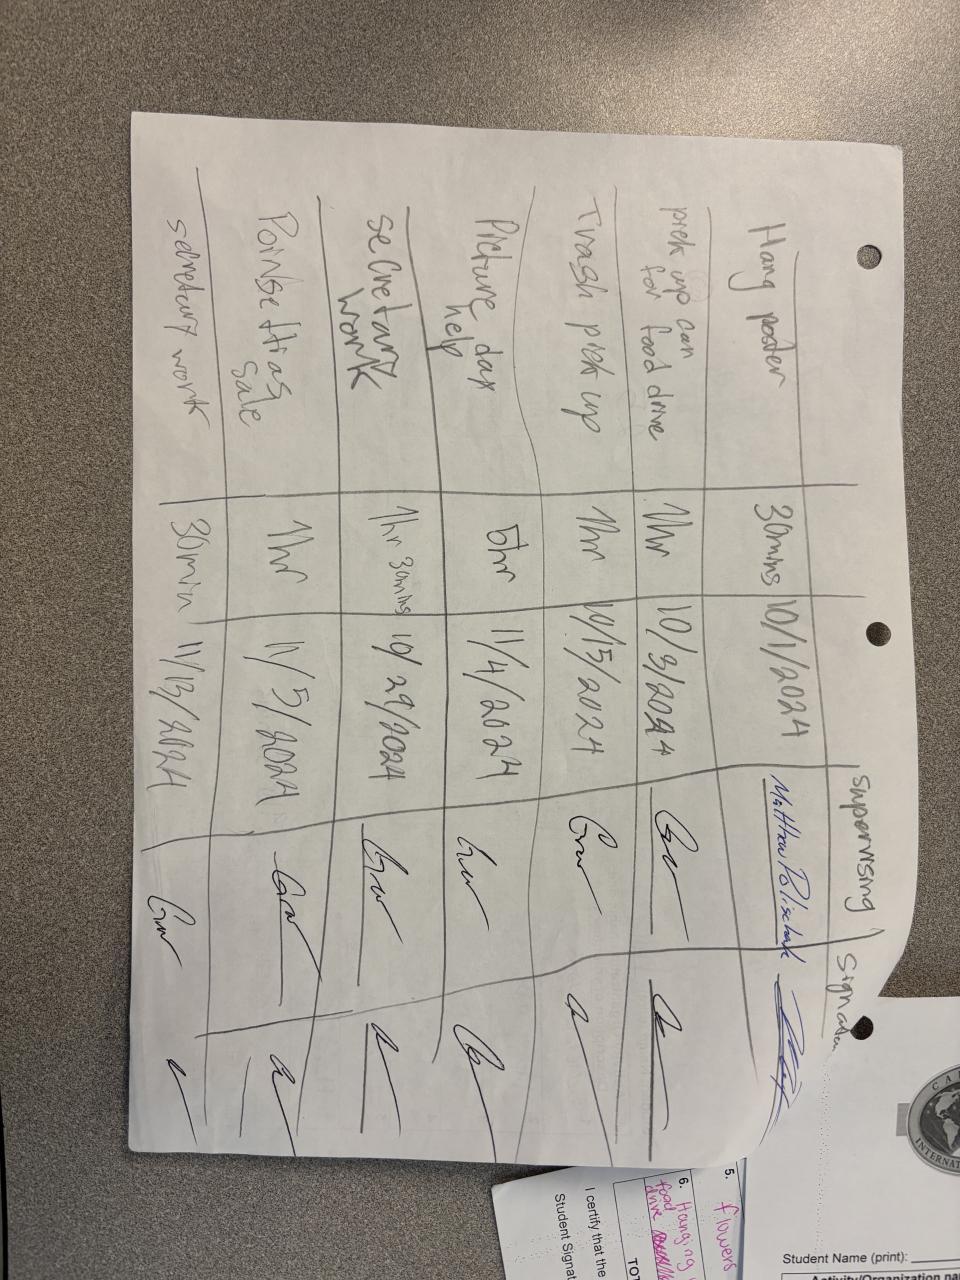 supervising / Signature
Hang poster 30mins 10/1/2024 Matthew Polischak
pick up can
for food drive 1hr 10/3/2024
Trash pick up 1hr 10/15/2024
Picture day
help 5hr 11/4/2024
secretary
work 1hr 30mins 10/29/2024
Poinsettias
Sale 1hr 11/5/2024
secretary work 30min 11/13/2024
5. flowers
6. Hanging
food
drive
TOT
I certify that the
Student Signat
CA
INTERNAT
Student Name (print):
Activity/Organization na